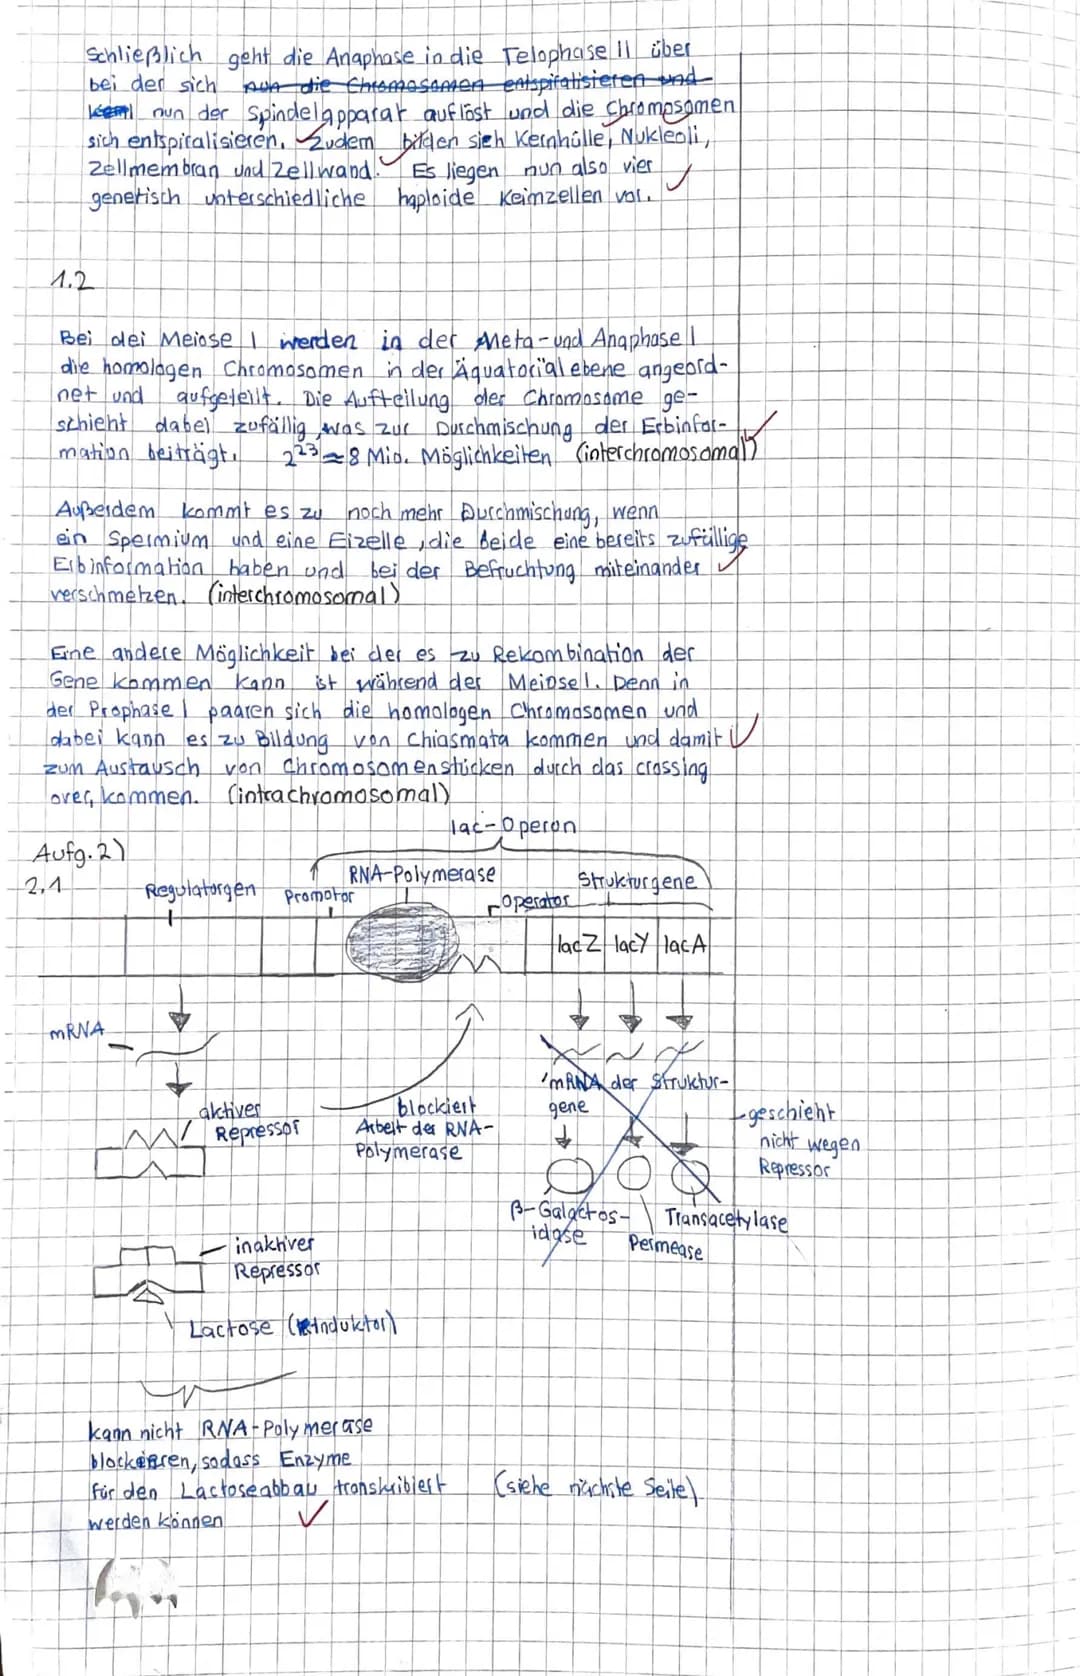 Schließlich geht die Anaphase in die Telophase II über
bei der sich nun die Chromosomen entspiralisieren und
nun der Spindelapparat auflöst und die Chromosomen
sich entspiralisieren. Zudem bilden sich Kernhülle, Nukleoli,
Zellmembran und Zellwand. Es liegen nun also vier
genetisch unterschiedliche haploide Keimzellen vor.
1.2
Bei der Meiose I werden in der Meta- und Anaphase I
die homologen Chromosomen in der Äquatorialebene angeord-
net und aufgeteilt. Die Aufteilung der Chromosome ge-
schieht dabei zufällig, was zur Durchmischung der Erbinfor-
mation beiträgt. 2^23 ≈ 8 Mio. Möglichkeiten (interchromosomal)
Außerdem kommt es zu noch mehr Durchmischung, wenn
ein Spermium und eine Eizelle, die beide eine bereits zufällige
Erbinformation haben und bei der Befruchtung miteinander
verschmelzen. (interchromosomal)
Eine andere Möglichkeit bei der es zu Rekombination der
Gene kommen kann ist während der Meiose I. Denn in
der Prophase I paaren sich die homologen Chromosomen und
dabei kann es zu Bildung von Chiasmata kommen und damit
zum Austausch von Chromosomenstücken durch das crossing
over, kommen. (intrachromosomal)
lac-Operon
Aufg. 2)
2.1
Regulatorgen
Promotor
RNA-Polymerase
Operator
Strukturgene
lacZ lacY lacA
mRNA
aktiver
Repressor
blockiert
Arbeit der RNA-
Polymerase
mRNA der Struktur-
gene
geschieht
nicht wegen
Repressor
β-Galactos-
idase
Permease
Transacetylase
inaktiver
Repressor
Lactose (Induktor)
kann nicht RNA-Polymerase
blockieren, sodass Enzyme
für den Lactoseabbau transkribiert
werden können
(siehe nächste Seite)